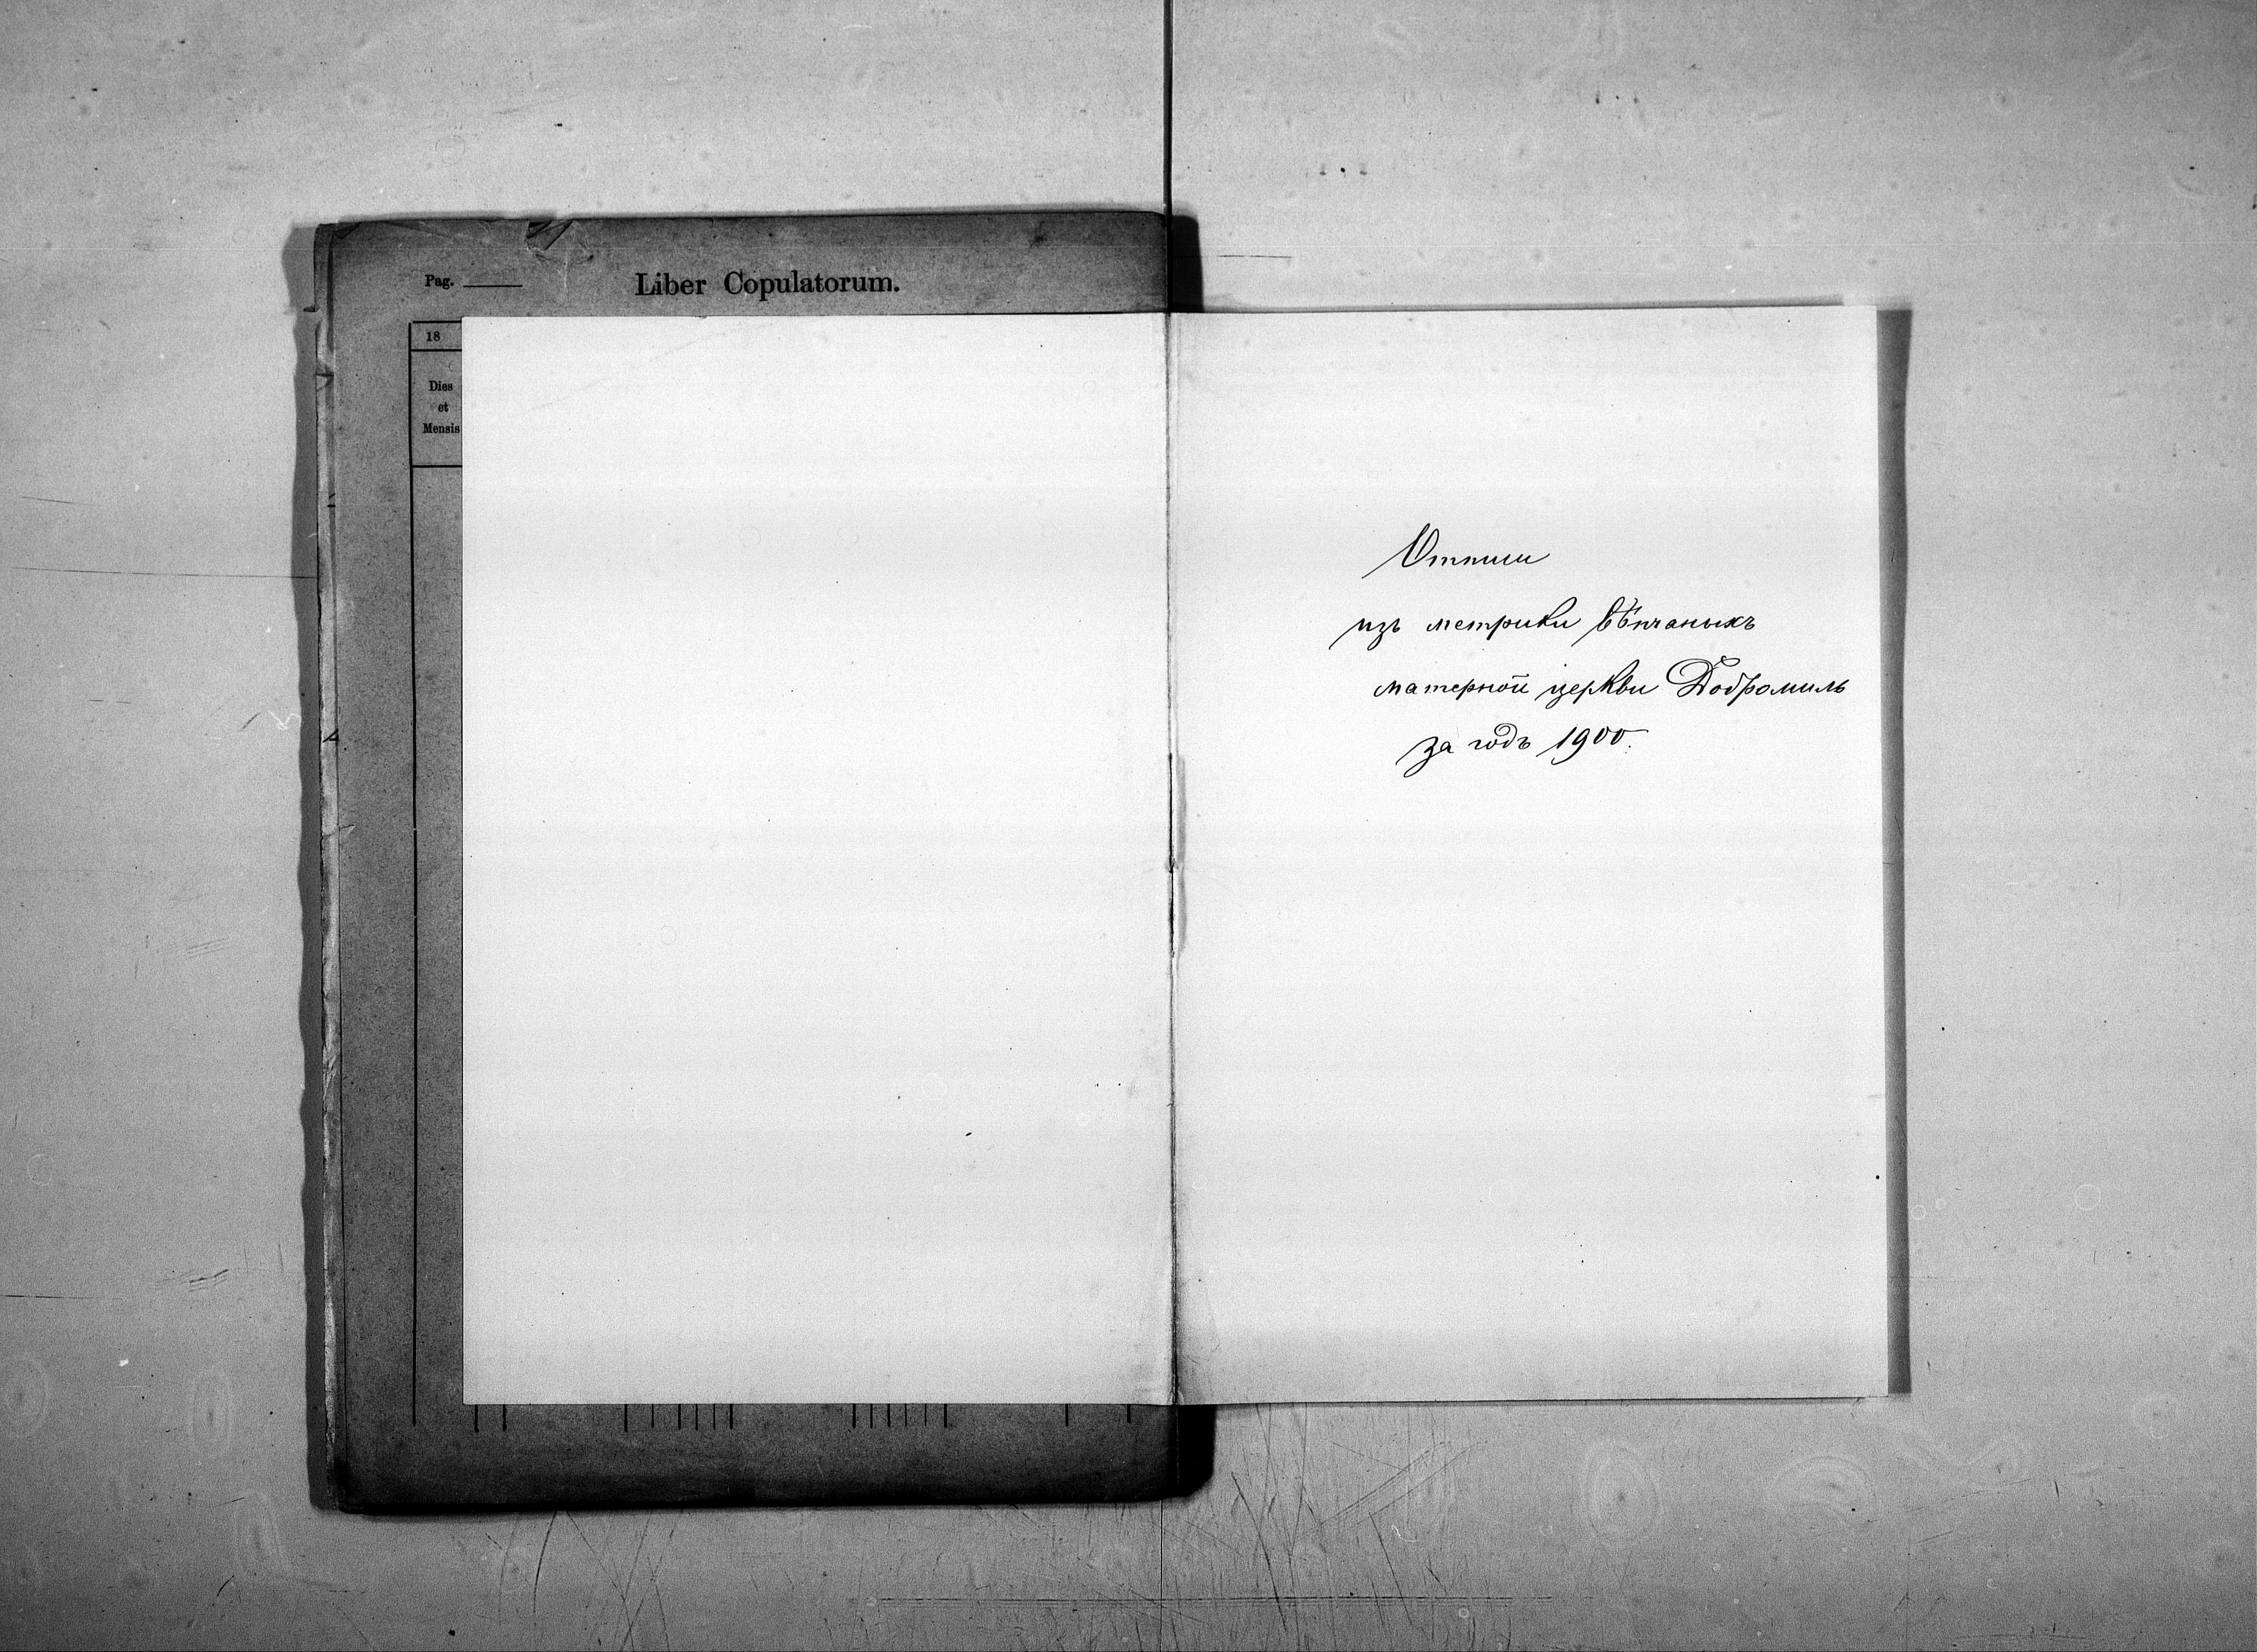 Pag.
Liber Copulatorum.
18
Dies
et
Mensis
Отписи
изъ метрики вѣнчаныхъ
матерной церкви Добромиль
за годъ 1900.